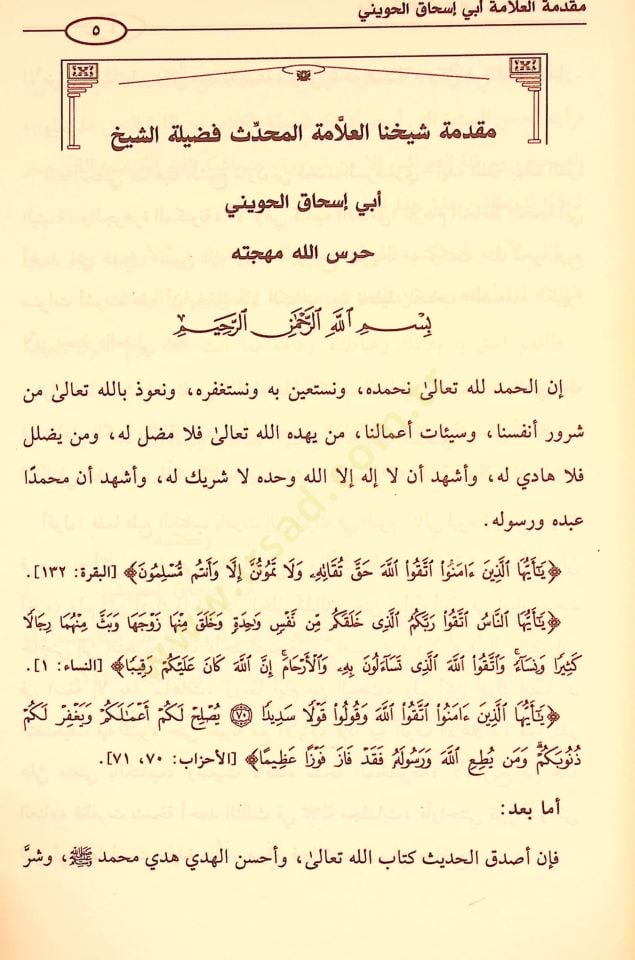 مقدمة العلامة أبي إسحاق الحويني
٥
مقدمة شيخنا العلاَّمة المحدِّث فضيلة الشيخ
أبي إسحاق الحويني
حرس الله مهجته
بِسْمِ اللَّهِ الرَّحْمَٰنِ الرَّحِيمِ
إن الحمد لله تعالىٰ نحمده، ونستعين به ونستغفره، ونعوذ بالله تعالىٰ من
شرور أنفسنا، وسيئات أعمالنا، من يهده الله تعالىٰ فلا مضل له، ومن يضلل
فلا هادي له، وأشهد أن لا إله إلا الله وحده لا شريك له، وأشهد أن محمدًا
عبده ورسوله.
﴿يَٰٓأَيُّهَا ٱلَّذِينَ ءَامَنُوا۟ ٱتَّقُوا۟ ٱللَّهَ حَقَّ تُقَاتِهِۦ وَلَا تَمُوتُنَّ إِلَّا وَأَنتُم مُّسْلِمُونَ﴾ [البقرة: ١٣٢].
﴿يَٰٓأَيُّهَا ٱلنَّاسُ ٱتَّقُوا۟ رَبَّكُمُ ٱلَّذِى خَلَقَكُم مِّن نَّفْسٍ وَٰحِدَةٍ وَخَلَقَ مِنْهَا زَوْجَهَا وَبَثَّ مِنْهُمَا رِجَالًا
كَثِيرًا وَنِسَآءً ۚ وَٱتَّقُوا۟ ٱللَّهَ ٱلَّذِى تَسَآءَلُونَ بِهِۦ وَٱلْأَرْحَامَ ۚ إِنَّ ٱللَّهَ كَانَ عَلَيْكُمْ رَقِيبًا﴾ [النساء: ١].
﴿يَٰٓأَيُّهَا ٱلَّذِينَ ءَامَنُوا۟ ٱتَّقُوا۟ ٱللَّهَ وَقُولُوا۟ قَوْلًا سَدِيدًا ۝٧٠ يُصْلِحْ لَكُمْ أَعْمَٰلَكُمْ وَيَغْفِرْ لَكُمْ
ذُنُوبَكُمْ ۗ وَمَن يُطِعِ ٱللَّهَ وَرَسُولَهُۥ فَقَدْ فَازَ فَوْزًا عَظِيمًا﴾ [الأحزاب: ٧٠، ٧١].
أما بعد:
فإن أصدق الحديث كتاب الله تعالىٰ، وأحسن الهدي هدي محمد ﷺ، وشرَّ